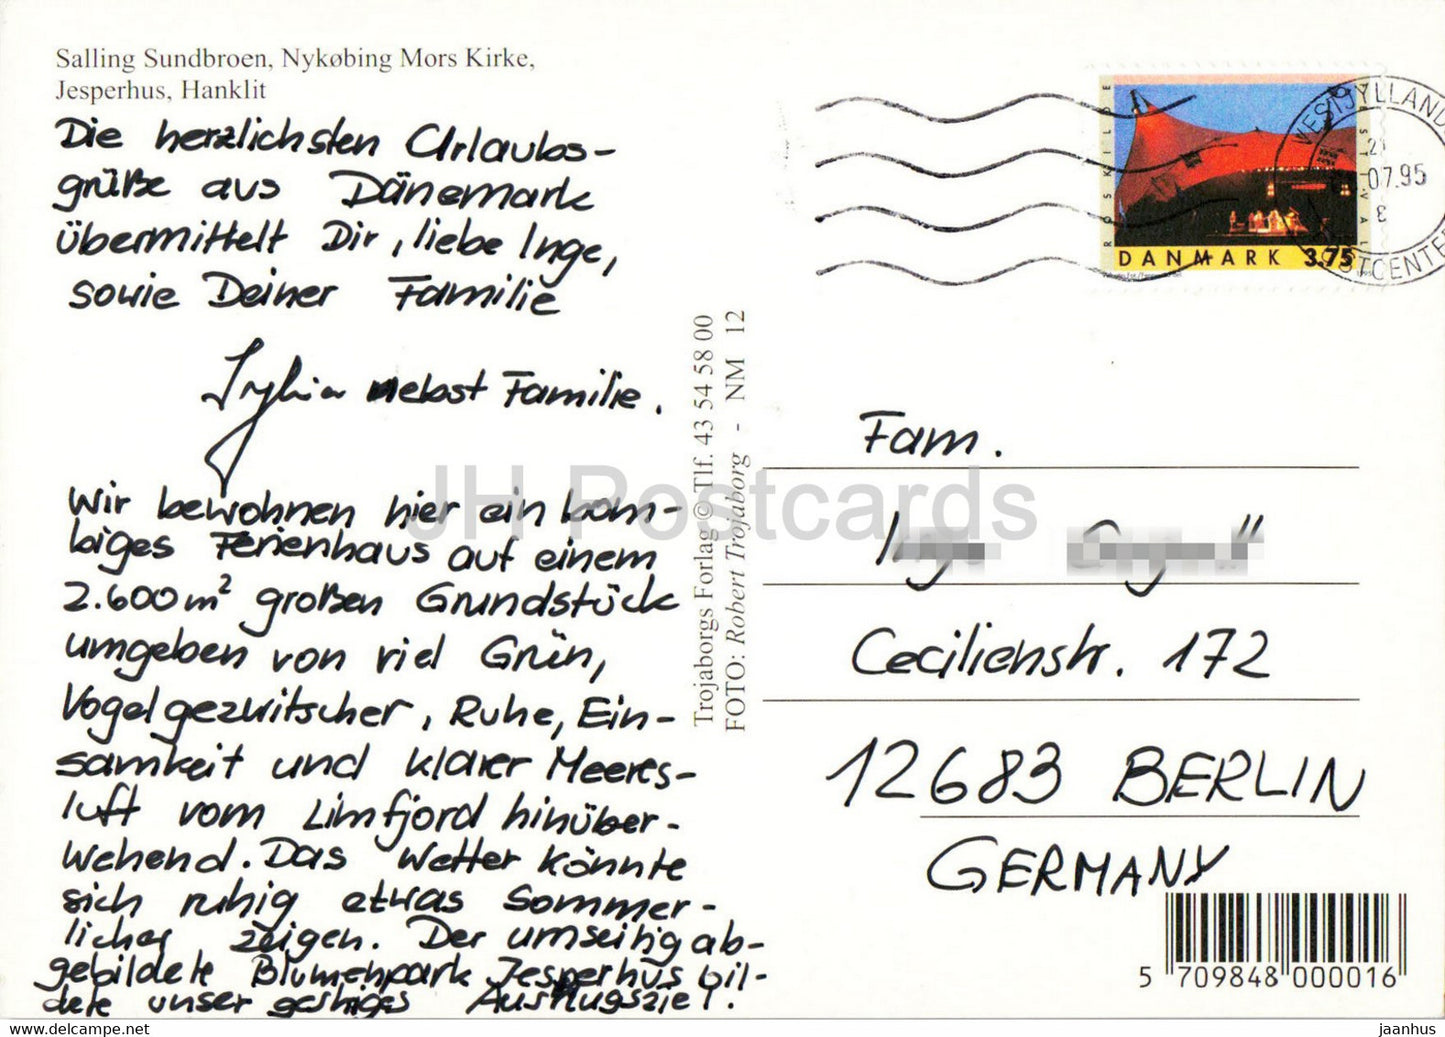 Salling Sundbroen, Nykøbing Mors Kirke,
Jesperhus, Hanklit
Die herzlichsten Urlaubs-
grüße aus Dänemark
übermittelt Dir, liebe Inge,
sowie Deiner Familie
Sylvia nebst Familie.
Wir bewohnen hier ein bom-
biges Ferienhaus auf einem
2.600m² großen Grundstück
umgeben von viel Grün,
Vogelgezwitscher, Ruhe, Ein-
samkeit und klarer Meeres-
luft vom Limfjord hinüber-
wehend. Das Wetter könnte
sich ruhig etwas sommer-
licher zeigen. Der umseitig ab-
gebildete Blumenpark Jesperhus bil-
dete unser gestriges Ausflugsziel.
Trojaborgs Forlag © Tlf. 43 54 58 00
FOTO: Robert Trojaborg - NM 12
ROSKILDE
FESTIVAL
DANMARK 3.75
1995
VESTJYLLANDS
POSTCENTER
21
07.95
Fam.
Cecilienstr. 172
12683 BERLIN
GERMANY
5 709848 000016
JH Postcards
https://www.ebay.com/usr/postcard*de
jaanhus